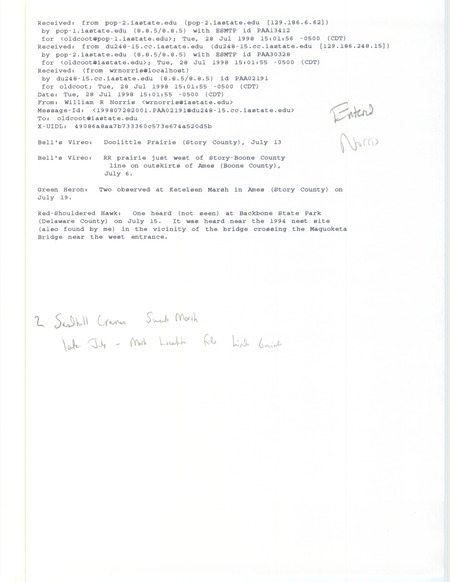 Received: from pop-2.iastate.edu (pop-2.iastate.edu [129.186.6.62])
by pop-1.iastate.edu (8.8.5/8.8.5) with ESMTP id PAA13412
for <oldcoot@pop-1.iastate.edu>; Tue, 28 Jul 1998 15:01:56 -0500 (CDT)
Received: from du248-15.cc.iastate.edu (du248-15.cc.iastate.edu [129.186.248.15])
by pop-2.iastate.edu (8.8.5/8.8.5) with ESMTP id PAA30328
for <oldcoot@iastate.edu>; Tue, 28 Jul 1998 15:01:55 -0500 (CDT)
Received: (from wrnorris@localhost)
by du248-15.cc.iastate.edu (8.8.5/8.8.5) id PAA02191
for oldcoot; Tue, 28 Jul 1998 15:01:55 -0500 (CDT)
Date: Tue, 28 Jul 1998 15:01:55 -0500 (CDT)
From: William R Norris <wrnorris@iastate.edu>
Message-Id: <199807282001.PAA02191@du248-15.cc.iastate.edu>
To: oldcoot@iastate.edu
X-UIDL: 49086a9aa7b733360c573e674a520d5b
Entered
Norris
Bell's Vireo: Doolittle Prairie (Story County), July 13
Bell's Vireo: RR prairie just west of Story-Boone County
line on outskirts of Ames (Boone County),
July 6.
Green Heron: Two observed at Ketelsen Marsh in Ames (Story County) on
July 19.
Red-Shouldered Hawk: One heard (not seen) at Backbone State Park
(Delaware County) on July 15. It was heard near the 1994 nest site
(also found by me) in the vicinity of the bridge crossing the Maquoketa
Bridge near the west entrance.
2 Sandhill Cranes Sweet Marsh
late July -